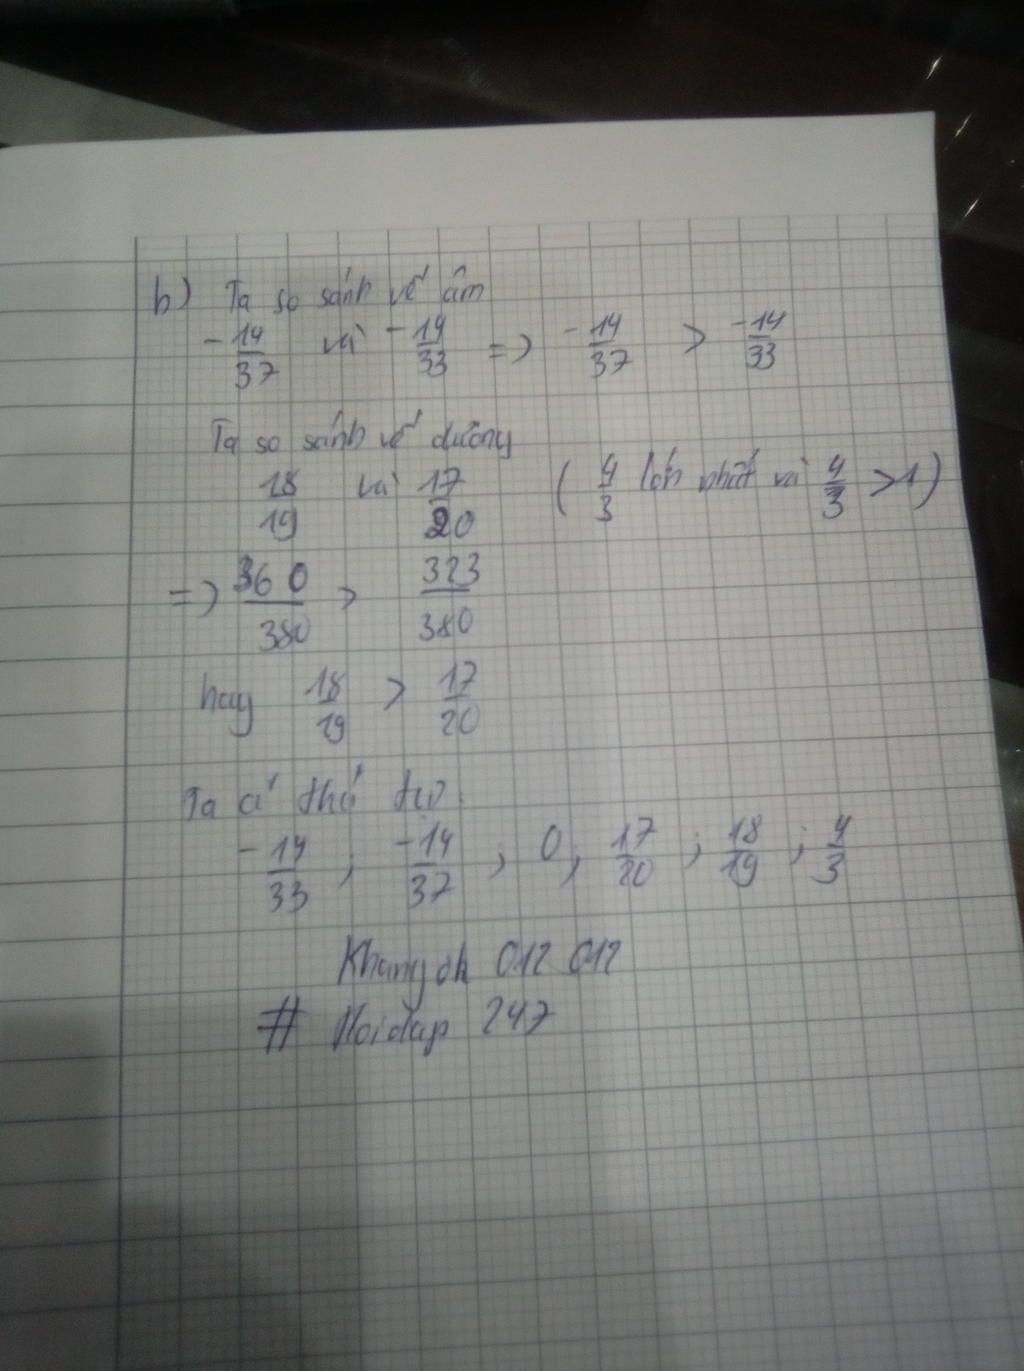 b) Ta so sánh vế âm
-14/37 và -14/33 => -14/37 > -14/33
Ta so sánh vế dương
18/19 và 17/20 (4/3 lớn nhất vì 4/3 > 1)
=> 360/380 > 323/380
hay 18/19 > 17/20
Ta có thứ tự
-14/33 ; -14/37 ; 0 ; 17/20 ; 18/19 ; 4/3
012 012
# Hoidap 247